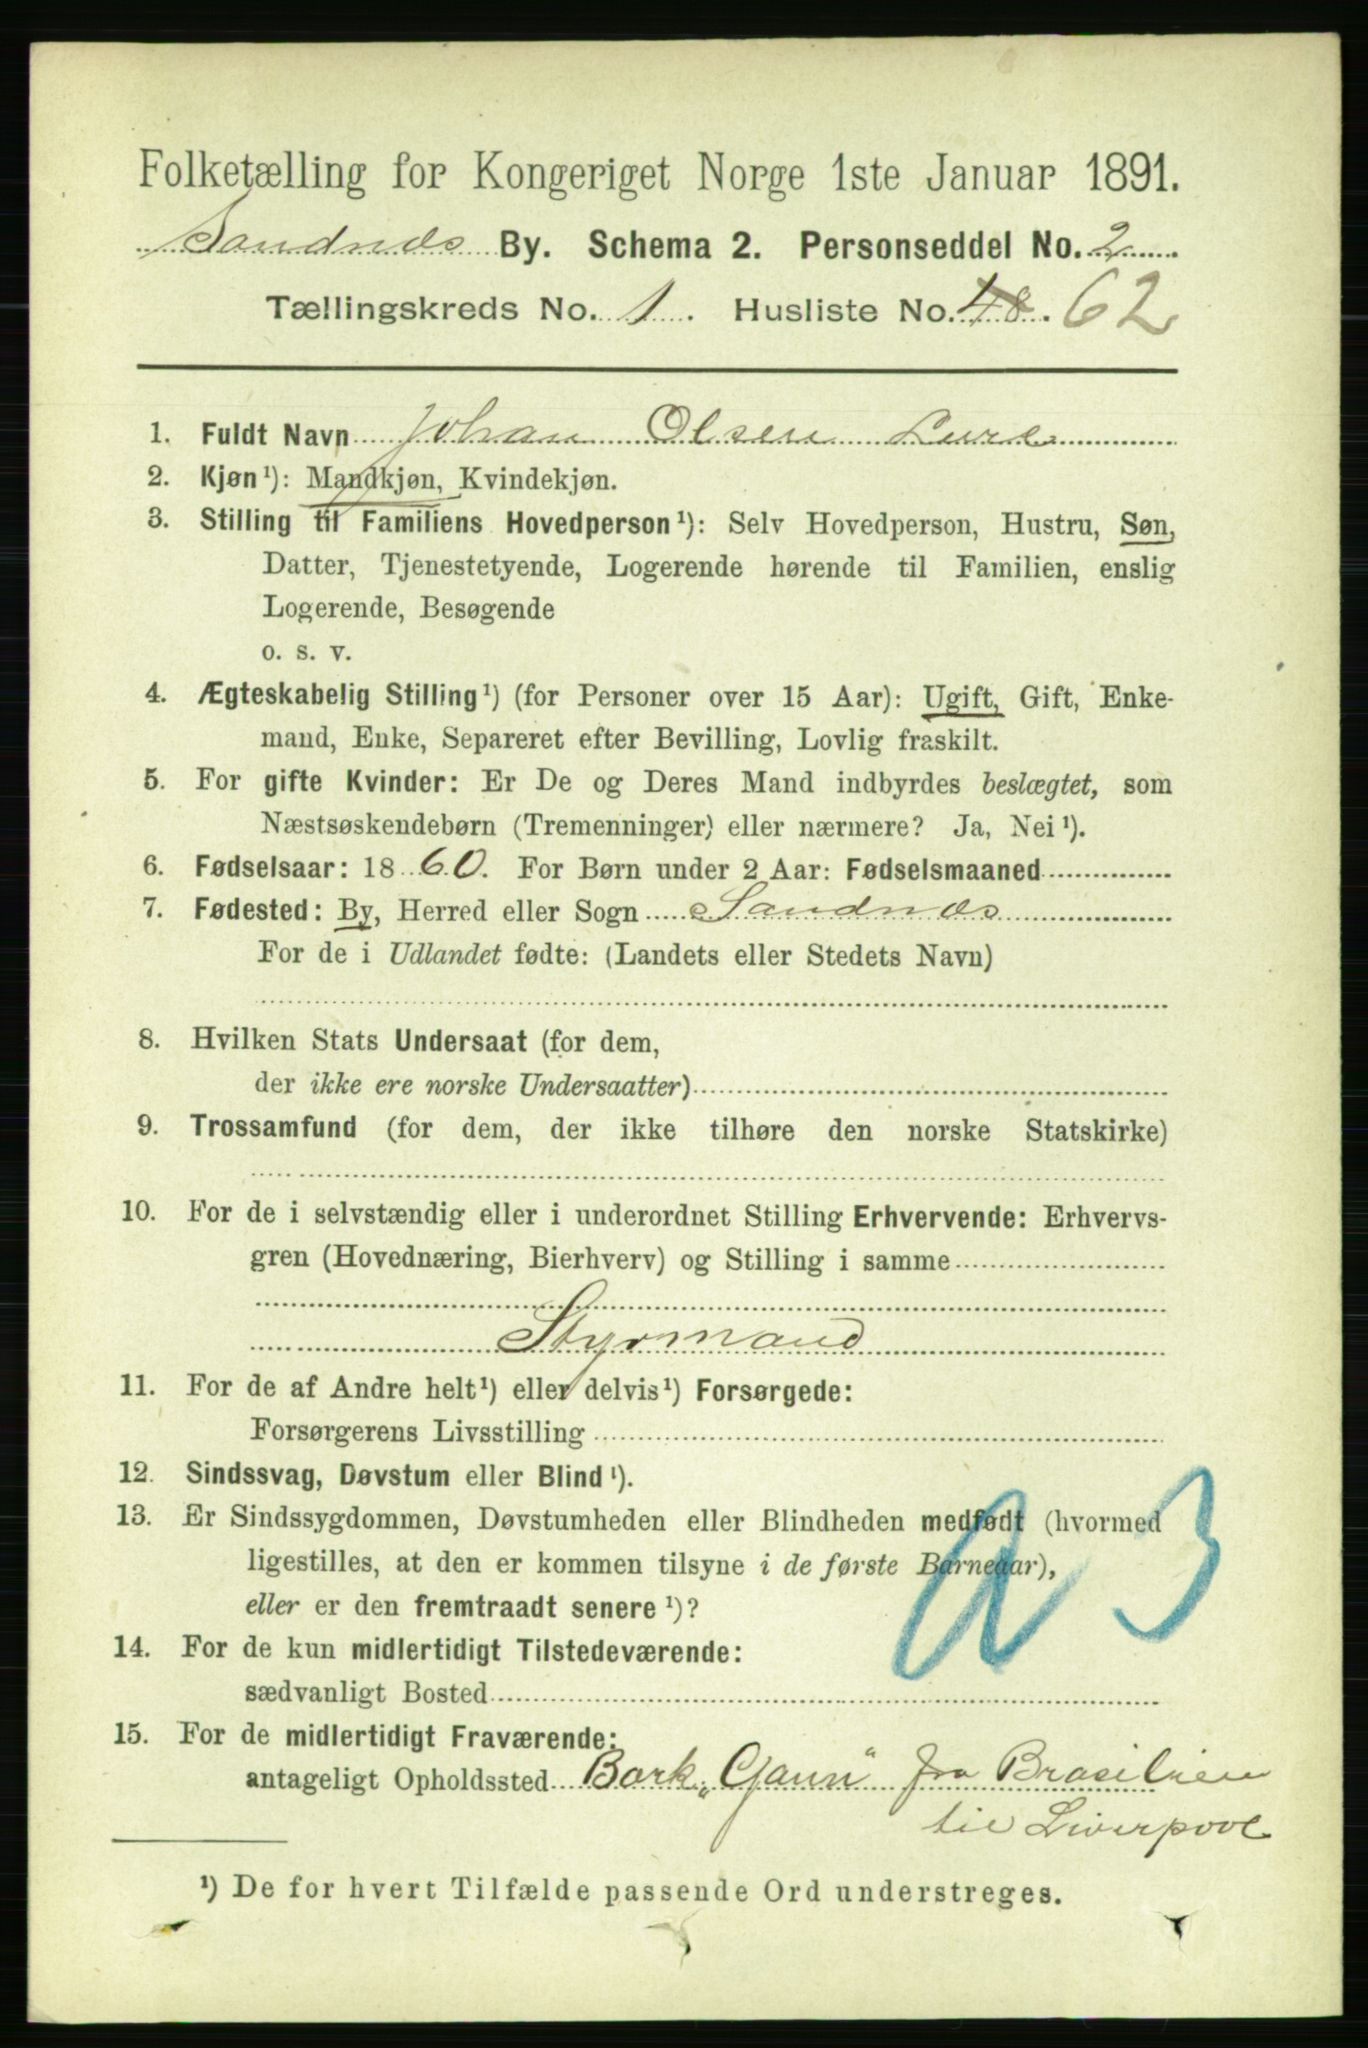 Folketælling for Kongeriget Norge 1ste Januar 1891.
Sandnæs By. Schema 2. Personseddel No. 2
Tællingskreds No. 1. Husliste No. 48. 62
1. Fuldt Navn Johan Olsen Lure
2. Kjøn¹): Mandkjøn, Kvindekjøn.
3. Stilling til Familiens Hovedperson¹): Selv Hovedperson, Hustru, Søn,
Datter, Tjenestetyende, Logerende hørende til Familien, enslig
Logerende, Besøgende
o. s. v.
4. Ægteskabelig Stilling¹) (for Personer over 15 Aar): Ugift, Gift, Enke-
mand, Enke, Separeret efter Bevilling, Lovlig fraskilt.
5. For gifte Kvinder: Er De og Deres Mand indbyrdes beslægtet, som
Næstsøskendebørn (Tremenninger) eller nærmere? Ja, Nei¹).
6. Fødselsaar: 1860. For Børn under 2 Aar: Fødselsmaaned
7. Fødested: By, Herred eller Sogn Sandnæs
For de i Udlandet fødte: (Landets eller Stedets Navn)
8. Hvilken Stats Undersaat (for dem,
der ikke ere norske Undersaatter)
9. Trossamfund (for dem, der ikke tilhøre den norske Statskirke)
10. For de i selvstændig eller i underordnet Stilling Erhvervende: Erhvervs-
gren (Hovednæring, Bierhverv) og Stilling i samme
Styrmand
11. For de af Andre helt¹) eller delvis¹) Forsørgede:
Forsørgerens Livsstilling
12. Sindssvag, Døvstum eller Blind¹).
13. Er Sindssygdommen, Døvstumheden eller Blindheden medfødt (hvormed
ligestilles, at den er kommen tilsyne i de første Barneaar),
eller er den fremtraadt senere¹)?
a 3
14. For de kun midlertidigt Tilstedeværende:
sædvanligt Bosted
15. For de midlertidigt Fraværende:
antageligt Opholdssted Bark „Gann" fra Brasilien
til Liverpool
¹) De for hvert Tilfælde passende Ord understreges.